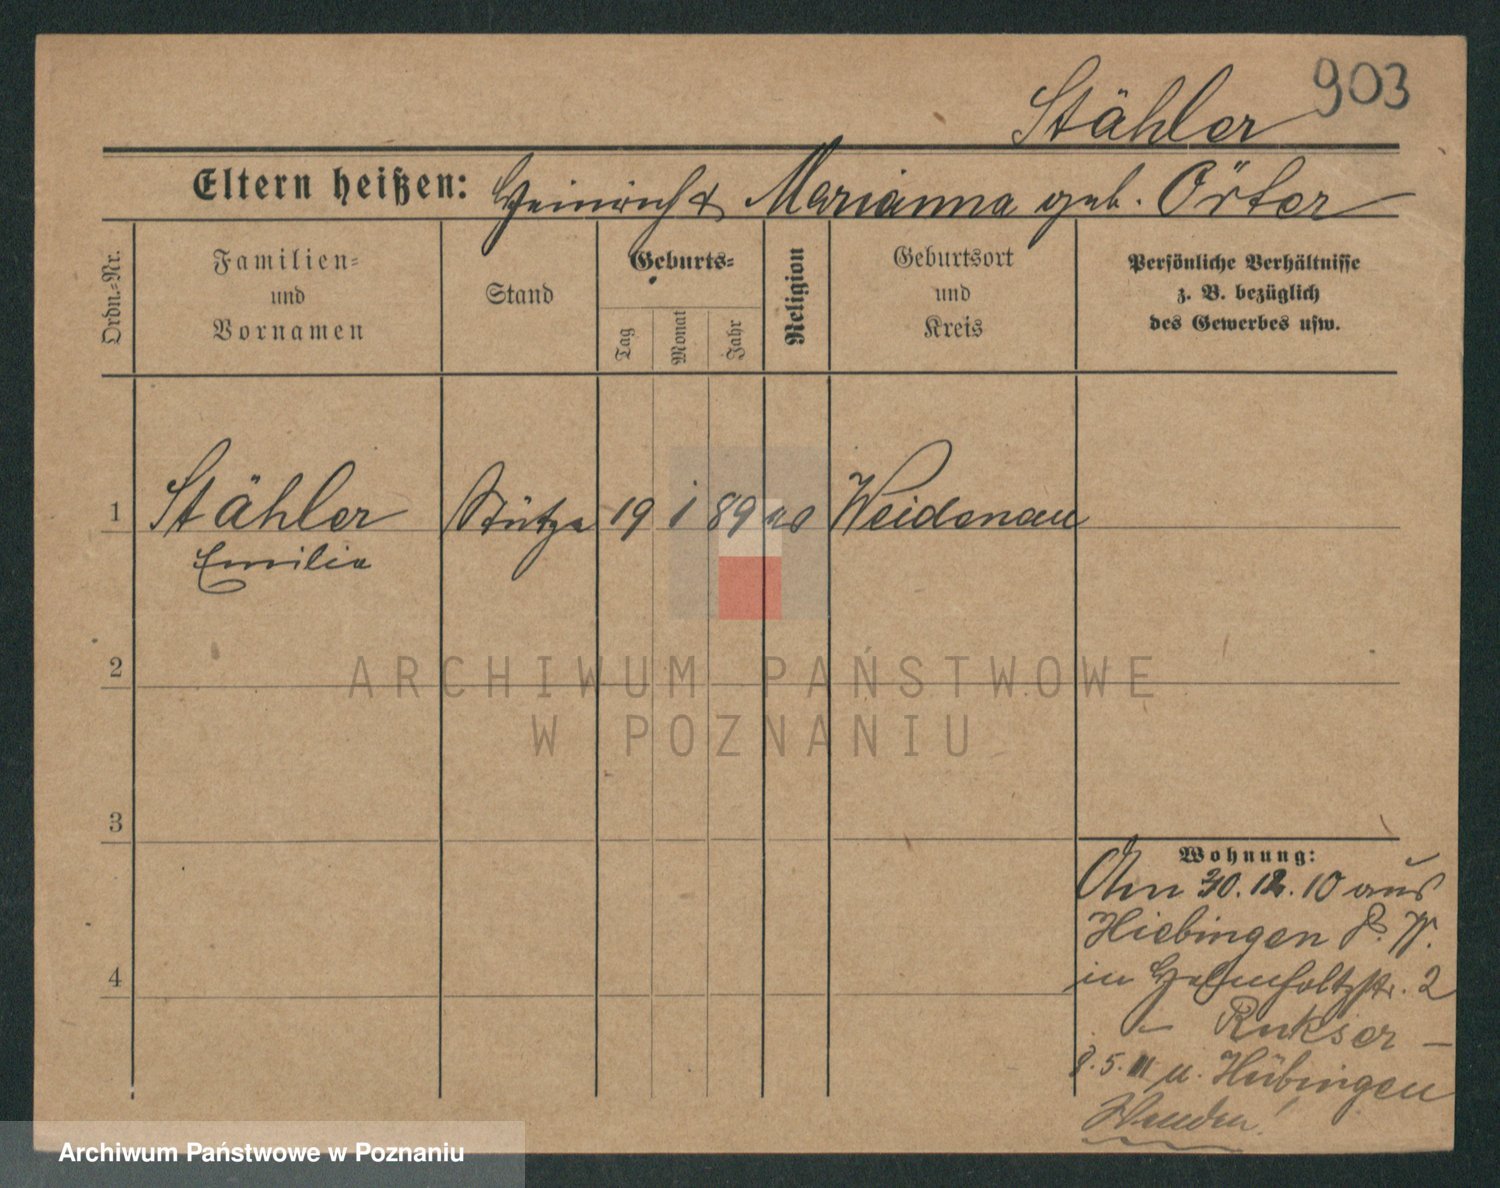 903
Stähler
Eltern heißen: Heinrich & Marianna geb. Örter
Ordn.-Nr.
Familien-
und
Vornamen
Stand
Geburts-
Tag
Monat
Jahr
Religion
Geburtsort
und
Kreis
Persönliche Verhältnisse
z. B. bezüglich
des Gewerbes usw.
1 Stähler Stütze 19 1 89 Weidenau
Emilie
2
3
4
Wohnung:
Am 30.12.10 aus
Hiebingen P. W.
in Helmholtzstr. 2
- Rukser -
8.5.11 n. Hübingen
Wenden!
ARCHIWUM PAŃSTWOWE
W POZNANIU
Archiwum Państwowe w Poznaniu